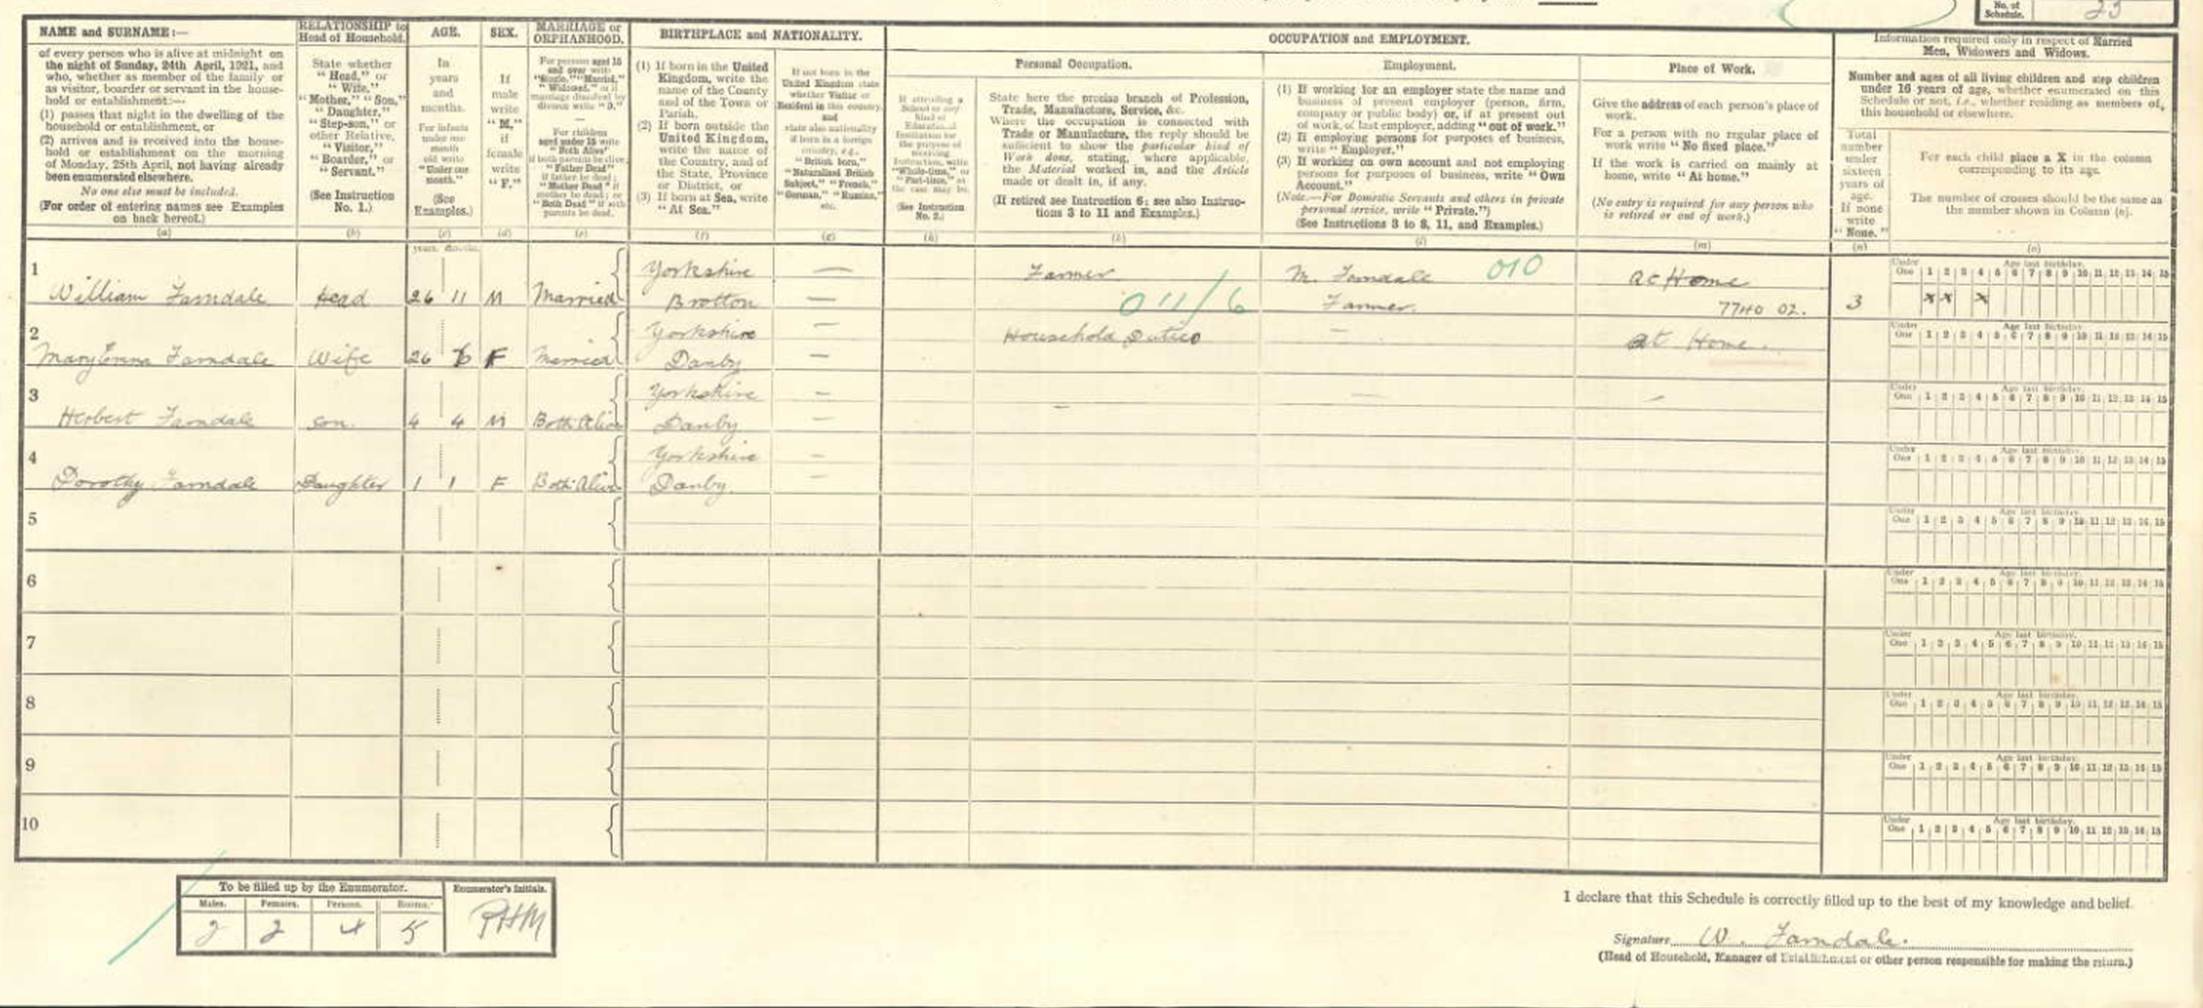 No. of Schedule. 23
NAME and SURNAME:—
of every person who is alive at midnight on
the night of Sunday, 24th April, 1921, and
who, whether as member of the family or
as visitor, boarder or servant in the house-
hold or establishment:—
(1) passes that night in the dwelling of the
household or establishment, or
(2) arrives and is received into the house-
hold or establishment on the morning
of Monday, 25th April, not having already
been enumerated elsewhere.
No one else must be included.
(For order of entering names see Examples
on back hereof.)
(a)
RELATIONSHIP to
Head of Household.
State whether
"Head," or
"Wife,"
"Mother," "Son,"
"Daughter,"
"Step-son," or
other Relative,
"Visitor,"
"Boarder," or
"Servant."
(See Instruction
No. 1.)
(b)
AGE.
In
years
and
months.
For infants
under one
month
old write
"Under one
month."
(See
Examples.)
(c)
years. months.
SEX.
If
male
write
"M,"
if
female
write
"F."
(d)
MARRIAGE or
ORPHANHOOD.
For persons aged 15
and over write
"Single," "Married,"
"Widowed," or if
marriage dissolved by
divorce write "D."
For children
aged under 15 write
"Both Alive"
if both parents be alive;
"Father Dead"
if father be dead;
"Mother Dead" if
mother be dead; or
"Both Dead" if both
parents be dead.
(e)
BIRTHPLACE and NATIONALITY.
(1) If born in the United
Kingdom, write the
name of the County
and of the Town or
Parish.
(2) If born outside the
United Kingdom,
write the name of
the Country, and of
the State, Province
or District, or
(3) If born at Sea, write
"At Sea."
(f)
If not born in the
United Kingdom state
whether Visitor or
Resident in this country.
and
state also nationality
if born in a foreign
country, e.g.,
"British born,"
"Naturalized British
Subject," "French,"
"German," "Russian,"
etc.
(g)
OCCUPATION and EMPLOYMENT.
If attending a
School or any
kind of
Educational
Institution for
the purpose of
receiving
Instruction, write
"Whole-time," or
"Part-time," as
the case may be.
(See Instruction
No. 2.)
(h)
Personal Occupation.
State here the precise branch of Profession,
Trade, Manufacture, Service, &c.
Where the occupation is connected with
Trade or Manufacture, the reply should be
sufficient to show the particular kind of
Work done, stating, where applicable,
the Material worked in, and the Article
made or dealt in, if any.
(If retired see Instruction 6; see also Instruc-
tions 3 to 11 and Examples.)
(k)
Employment.
(1) If working for an employer state the name and
business of present employer (person, firm,
company or public body) or, if at present out
of work, of last employer, adding "out of work."
(2) If employing persons for purposes of business,
write "Employer."
(3) If working on own account and not employing
persons for purposes of business, write "Own
Account."
(Note.—For Domestic Servants and others in private
personal service, write "Private.")
(See Instructions 3 to 8, 11, and Examples.)
(l)
Place of Work.
Give the address of each person's place of
work.
For a person with no regular place of
work write "No fixed place."
If the work is carried on mainly at
home, write "At home."
(No entry is required for any person who
is retired or out of work.)
(m)
Information required only in respect of Married
Men, Widowers and Widows.
Number and ages of all living children and step children
under 16 years of age, whether enumerated on this
Schedule or not, i.e., whether residing as members of
this household or elsewhere.
Total
number
under
sixteen
years of
age.
If none
write
"None."
(n)
For each child place a X in the column
corresponding to its age.
The number of crosses should be the same as
the number shown in Column (n).
(o)
1 William Farndale Head 26 11 M Married Yorkshire Brotton — — Farmer 011/6 M. Farndale Farmer. 010 at Home 77H0 02. 3 x x x
2 Mary Emma Farndale Wife 26 6 F Married Yorkshire Danby — — Household Duties — at Home.
3 Herbert Farndale son. 4 4 M Both Alive Yorkshire Danby — — — — —
4 Dorothy Farndale Daughter 1 1 F Both Alive Yorkshire Danby. — —
5
6
7
8
9
10
Under One Age last birthday. 1 2 3 4 5 6 7 8 9 10 11 12 13 14 15
To be filled up by the Enumerator.
Males. Females. Persons. Rooms.
2 2 4 5
Enumerator's Initials.
RHM
I declare that this Schedule is correctly filled up to the best of my knowledge and belief.
Signature W. Farndale.
(Head of Household, Manager of Establishment or other person responsible for making the return.)